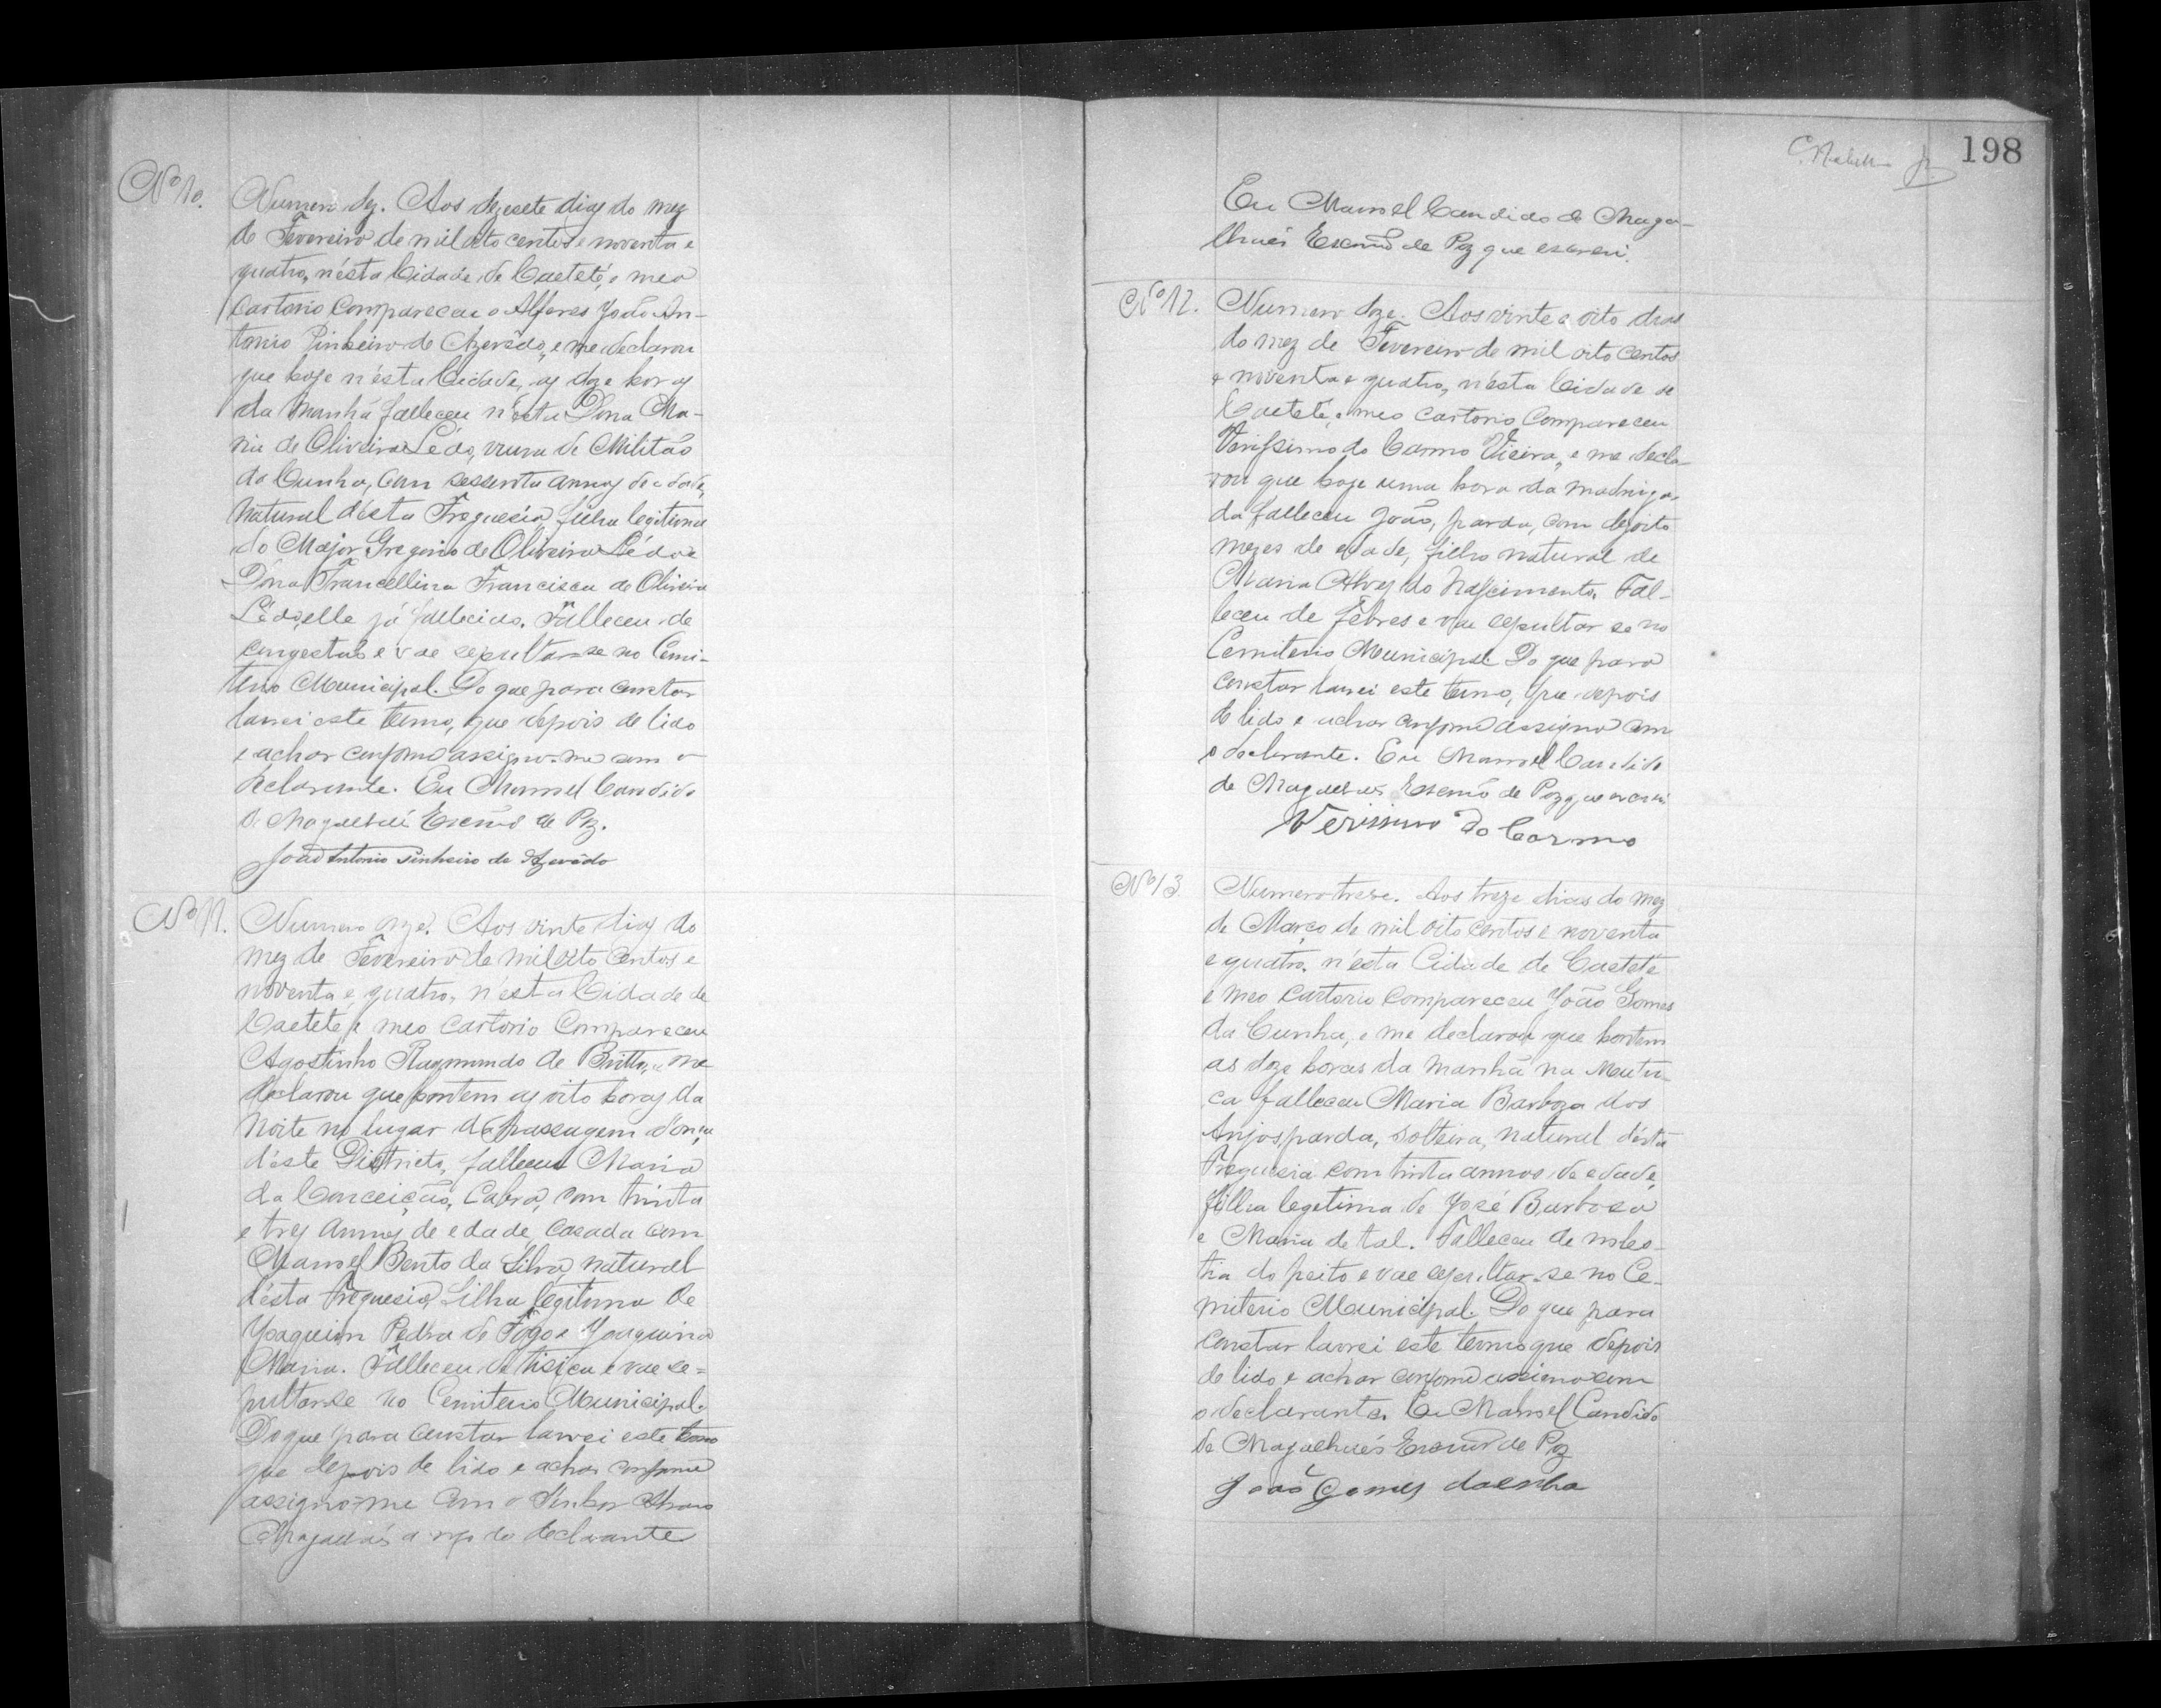 Nº 10.
Numero dez. Aos dezesete dias do mez
de Fevereiro de mil oito centos e noventa e
quatro, n'ésta Cidade de Caeteté, e meo
Cartorio Compareceu o Alferes João An-
tonio Pinheiro de Azevêdo, e me declarou
que hoje n'ésta Cidade, as doze horas
da manhã falleceu n'ésta Dona Ma-
ria de Oliveira Lédo, viuva de Militão
da Cunha, com sessenta annos de edade,
natural d'ésta Freguesia, filha legitima
do Major Gregorio de Oliveira Lédo e
Dona Francellina Francisca de Oliveira
Lédo, elle já fallecido. Falleceu de
congestão e vae sepultar-se no Cemi-
terio Municipal. Do que para constar
lavrei este termo, que depois de lido
e achar conforme assigno-me com o
declarante. Eu Manoel Candido
de Magalhães Escrivão de Paz.
João Antonio Pinheiro de Azevêdo
Nº 11.
Numero onze. Aos vinte dias do
mez de Fevereiro de mil oito centos e
noventa e quatro, n'ésta Cidade de
Caeteté e meo Cartorio Compareceu
Agostinho Raymundo de Britto, e me
declarou que hontem as oito horas da
noite no lugar da passagem d'onça
d'éste Districto, falleceu Maria
da Conceição, Cabra, com trinta
e tres annos de edade, casada com
Manoel Bento da Silva, natural
d'ésta Freguesia, filha legitima de
Joaquim Pedra de Fogo e Joaquina
Maria. Falleceu de tisica e vae se=
pultarse no Cemiterio Municipal.
Do que para constar lavrei este termo
que depois de lido e achar conforme
assigno-me com o Senhor
Magalhães a rogo do declarante
198
Eu Manoel Candido de Maga-
lhães Escrivão de Paz que escrevi.
Nº 12.
Numero doze. Aos vinte e oito dias
do mez de Fevereiro de mil oito centos
e noventa e quatro, n'ésta Cidade de
Caeteté, e meo cartorio Compareceu
Verissimo do Carmo Vieira, e me decla-
rou que hoje uma hora da madruga-
da falleceu João, pardo, com dezoito
mezes de edade, filho natural de
Maria Alves do Nascimento. Fal-
leceu de fébres e vae sepultar se no
Cemiterio Municipal. Do que para
constar lavrei este termo, que depois
de lido e achar conforme assigno com
o declarante. Eu Manoel Candido
de Magalhães Escrivão de Paz que escrevi
Verissimo do Carmo
Nº 13
Numero treze. Aos treze dias do mez
de Março de mil oito centos e noventa
e quatro, n'ésta Cidade de Caeteté
e meo Cartorio compareceu João Gomes
da Cunha, e me declarou que hontem
as doze horas da manhã na Mutu-
ca falleceu Maria Barboza dos
Anjos, parda, solteira, natural d'ésta
Freguesia com trinta annos de edade,
filha legitima de José Barbosa
e Maria de tal. Falleceu de moles-
tia do peito e vae sepultar-se no Ce-
miterio Municipal. Do que para
constar lavrei este termo que depois
de lido e achar conforme assigno com
o declarante. Eu Manoel Candido
de Magalhães Escrivão de Paz
João Gomes da cnha